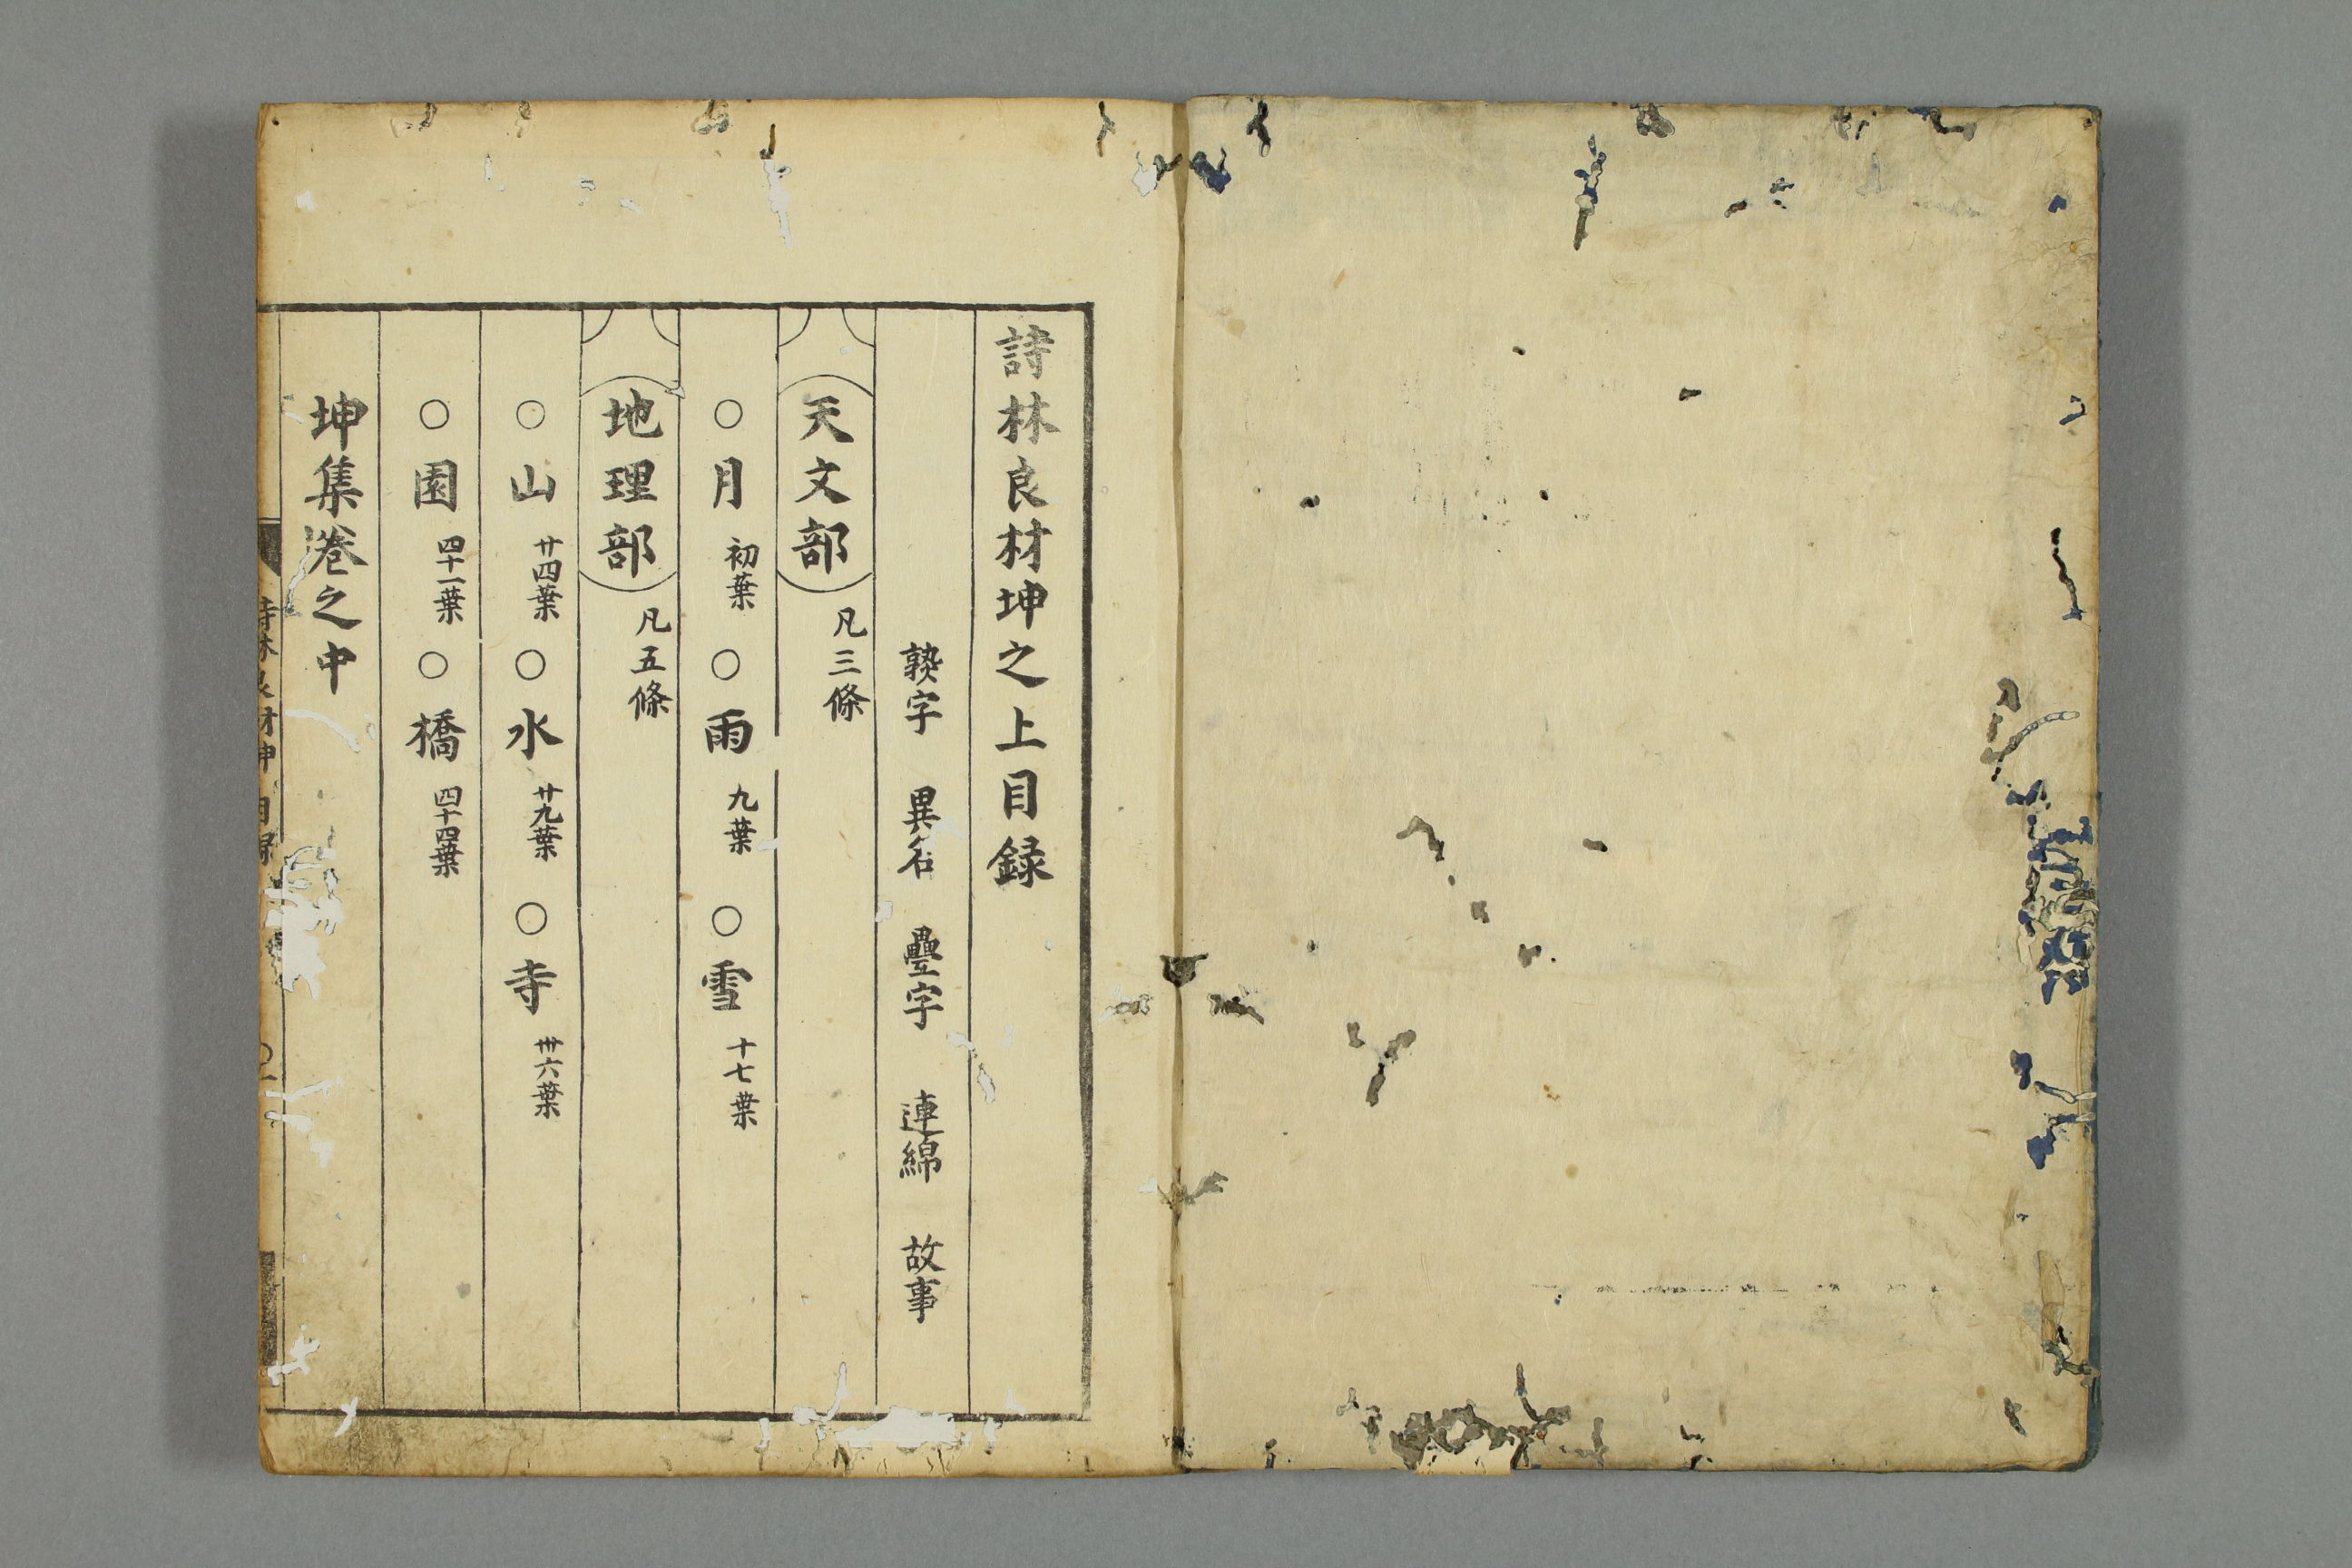 詩林良材坤之上目録
熟字 異名 疊字 連綿 故事
天文部 凡三條
○月 初葉 ○雨 九葉 ○雪 十七葉
地理部 凡五條
○山 廿四葉 ○水 廿九葉 ○寺 卅六葉
○園 四十一葉 ○橋 四十四葉
坤集卷之中